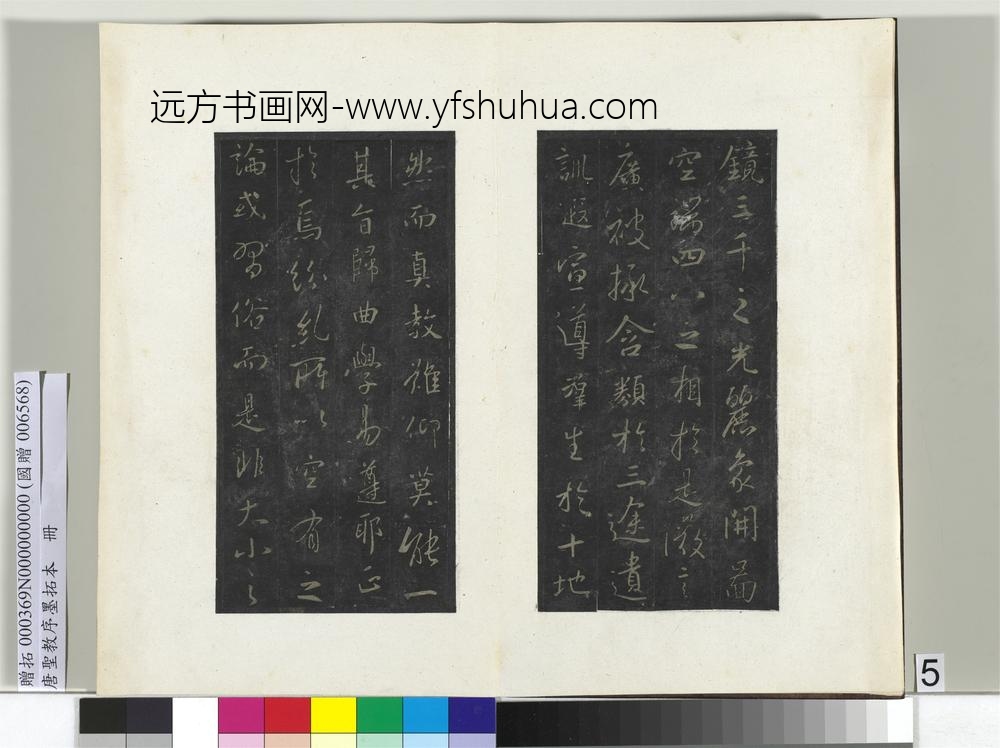 远方书画网-www.yfshuhua.com
鏡三千之光麗象開圖
空端四八之相於是微言
廣被拯含類於三途遺
訓遐宣導群生於十地
然而真教難仰莫能一
其旨歸曲學易遵耶正
於焉紛糺所以空有之
論或習俗而是非大小之
贈拓 000369N000000000 (國贈 006568)
唐聖教序墨拓本 冊
5